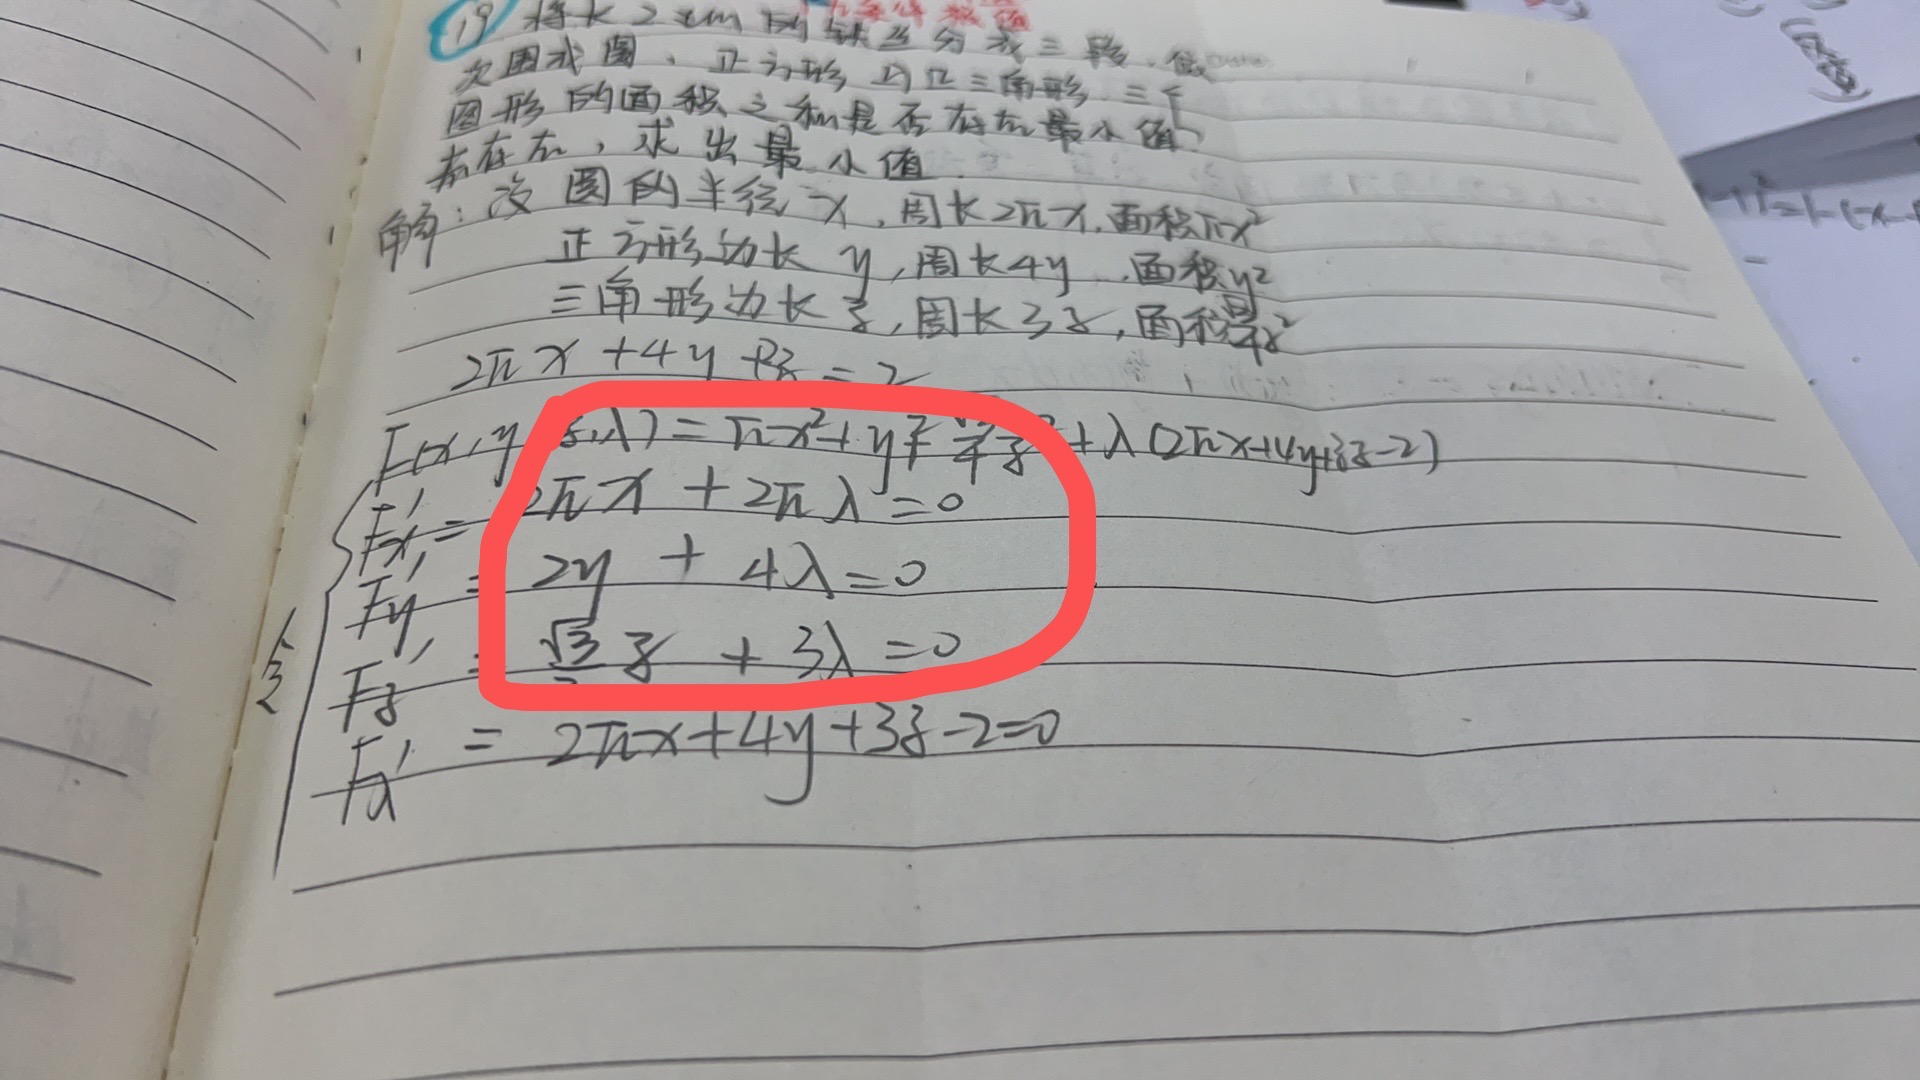 19 将长2cm的铁丝分成三段,做
次围成圆、正方形与正三角形.三个
图形的面积之和是否存在最小值
若存在,求出最小值.
解:设圆的半径x,周长2πx,面积πx²
正方形边长 y,周长4y,面积y²
三角形边长z,周长3z,面积√3/4z²
2πx+4y+3z=2
F(x,y,z,λ)=πx²+y²+√3/4z²+λ(2πx+4y+3z-2)
Fx'=2πx+2πλ=0
Fy'=2y+4λ=0
令
Fz'=√3/2z+3λ=0
Fλ'=2πx+4y+3z-2=0